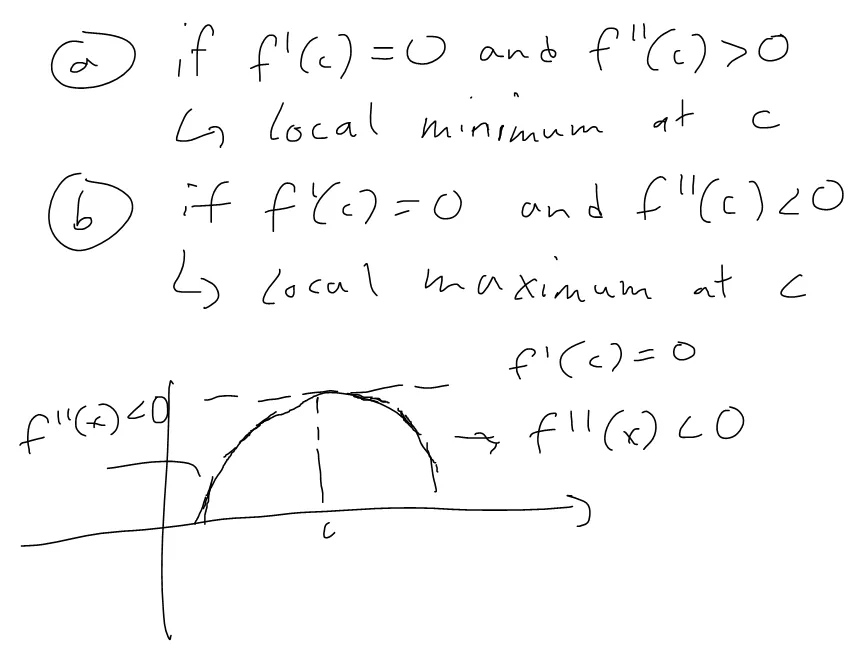 (a) if f'(c) = 0 and f''(c) > 0
↳ local minimum at c
(b) if f'(c) = 0 and f''(c) < 0
↳ local maximum at c
f'(c) = 0
f''(x) < 0
→ f''(x) < 0
c